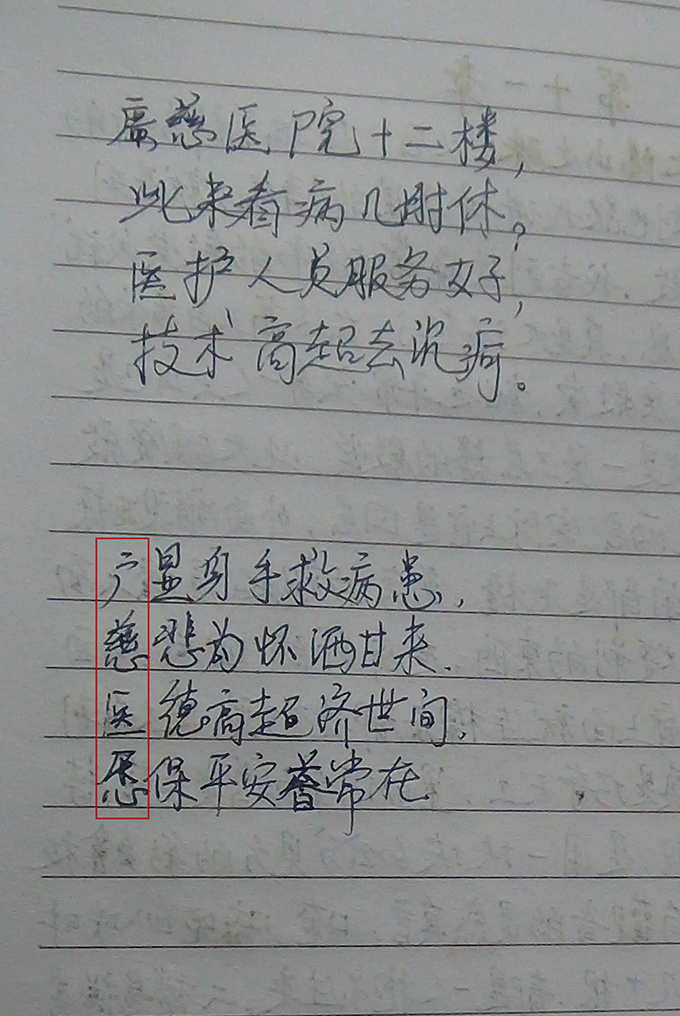 廣慈医院十二楼，
此来看病几时休。
医护人员服务好，
技术高超去沉疴。
广显身手救病患，
慈悲为怀洒甘来.
医德高超济世间，
愿保平安常在